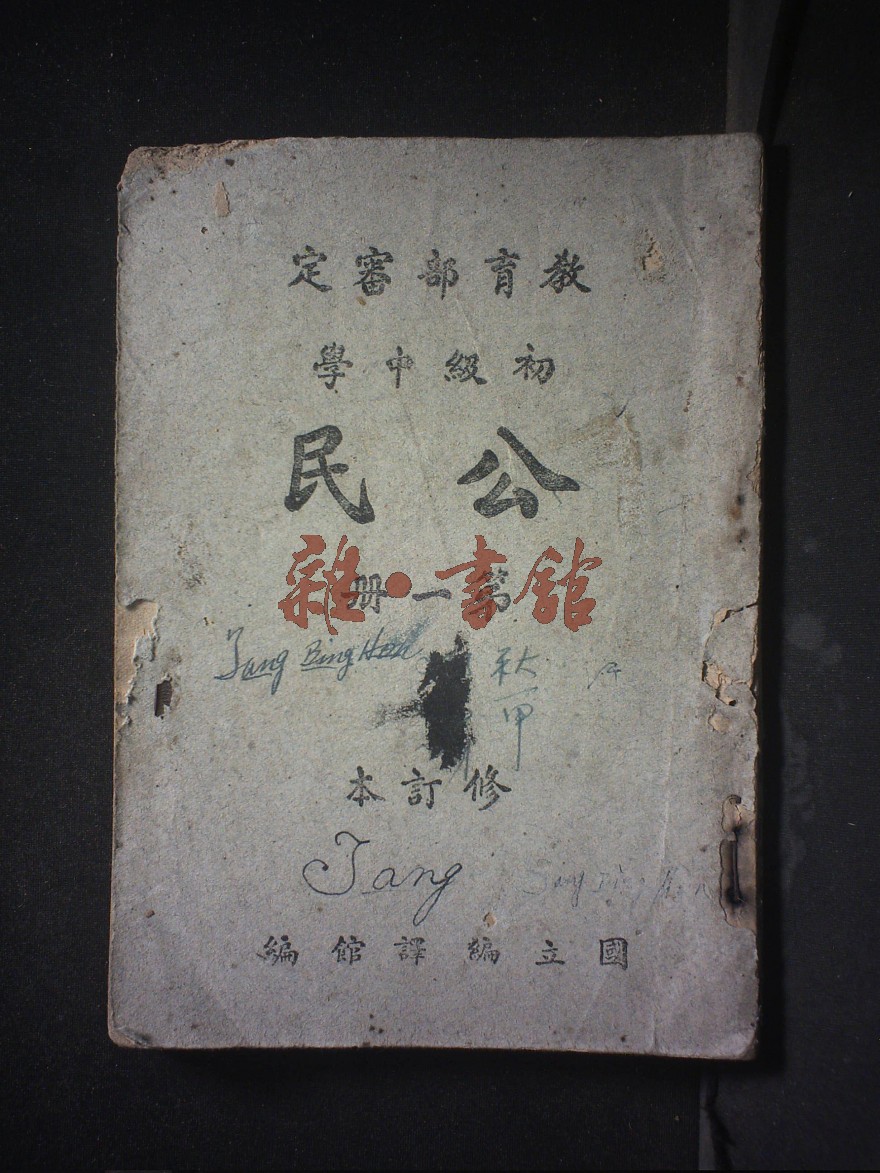 教育部審定
初級中學
公民
第一冊
雜·書舘
Tang Bing Hou
秋
一甲
修訂本
Tang
國立編譯館編